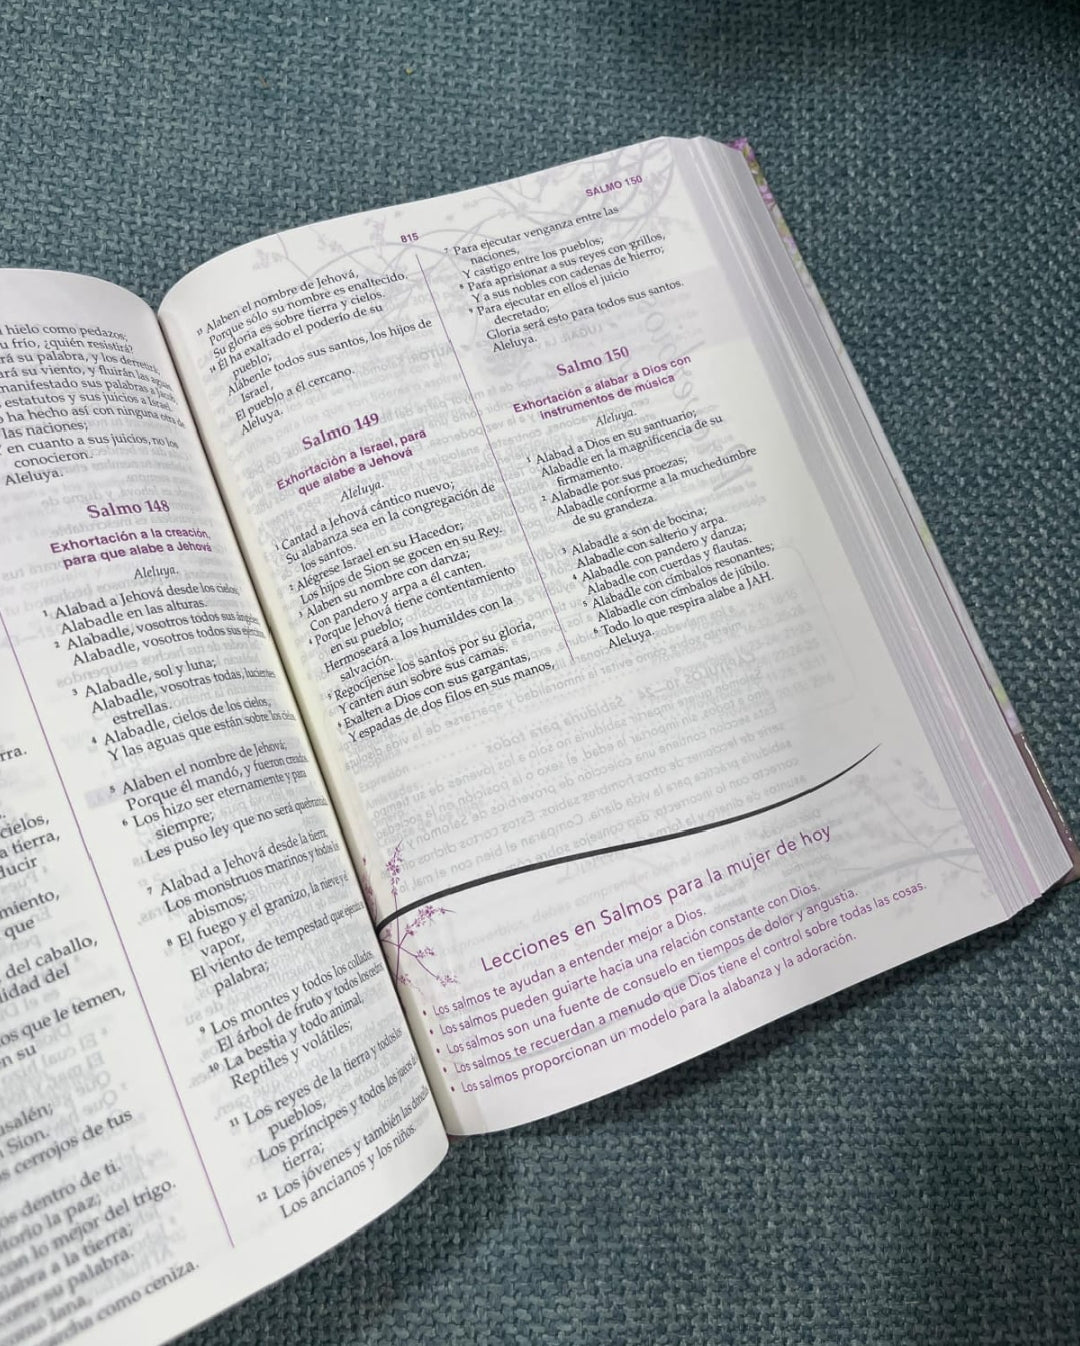 l hielo como pedazos;
u frío, ¿quién resistirá?
rá su palabra, y los derretirá;
ará su viento, y fluirán las aguas.
manifestado sus palabras a Jacob,
estatutos y sus juicios a Israel.
o ha hecho así con ninguna otra de
las naciones;
Y en cuanto a sus juicios, no los
conocieron.
Aleluya.
rra.
cielos,
a tierra,
ducir
miento,
que
del caballo,
lidad del
los que le temen,
en su
usalén;
Sion.
s cerrojos de tus
os dentro de ti.
itorio la paz;
con lo mejor del trigo.
labra a la tierra;
corre su palabra.
como lana,
como ceniza.
Salmo 148
Exhortación a la creación,
para que alabe a Jehová
Aleluya.
1 Alabad a Jehová desde los cielos;
Alabadle en las alturas.
2 Alabadle, vosotros todos sus ángeles;
Alabadle, vosotros todos sus ejércitos.
3 Alabadle, sol y luna;
Alabadle, vosotras todas, lucientes
estrellas.
4 Alabadle, cielos de los cielos,
Y las aguas que están sobre los cielos.
5 Alaben el nombre de Jehová;
Porque él mandó, y fueron creados.
6 Los hizo ser eternamente y para
siempre;
Les puso ley que no será quebrantada.
7 Alabad a Jehová desde la tierra,
Los monstruos marinos y todos los
abismos;
8 El fuego y el granizo, la nieve y el
vapor,
El viento de tempestad que ejecuta su
palabra;
9 Los montes y todos los collados,
El árbol de fruto y todos los cedros;
10 La bestia y todo animal,
Reptiles y volátiles;
11 Los reyes de la tierra y todos los
pueblos,
Los príncipes y todos los jueces de la
tierra;
12 Los jóvenes y también las doncellas,
Los ancianos y los niños.
815
SALMO 150
13 Alaben el nombre de Jehová,
Porque sólo su nombre es enaltecido.
Su gloria es sobre tierra y cielos.
14 Él ha exaltado el poderío de su
pueblo;
Alábenle todos sus santos, los hijos de
Israel,
El pueblo a él cercano.
Aleluya.
Salmo 149
Exhortación a Israel, para
que alabe a Jehová
Aleluya.
1 Cantad a Jehová cántico nuevo;
Su alabanza sea en la congregación de
los santos.
2 Alégrese Israel en su Hacedor;
Los hijos de Sion se gocen en su Rey.
3 Alaben su nombre con danza;
Con pandero y arpa a él canten.
4 Porque Jehová tiene contentamiento
en su pueblo;
Hermoseará a los humildes con la
salvación.
5 Regocíjense los santos por su gloria,
Y canten aun sobre sus camas.
6 Exalten a Dios con sus gargantas,
Y espadas de dos filos en sus manos,
7 Para ejecutar venganza entre las
naciones,
Y castigo entre los pueblos;
8 Para aprisionar a sus reyes con grillos,
Y a sus nobles con cadenas de hierro;
9 Para ejecutar en ellos el juicio
decretado;
Gloria será esto para todos sus santos.
Aleluya.
Salmo 150
Exhortación a alabar a Dios con
instrumentos de música
Aleluya.
1 Alabad a Dios en su santuario;
Alabadle en la magnificencia de su
firmamento.
2 Alabadle por sus proezas;
Alabadle conforme a la muchedumbre
de su grandeza.
3 Alabadle a son de bocina;
Alabadle con salterio y arpa.
4 Alabadle con pandero y danza;
Alabadle con cuerdas y flautas.
5 Alabadle con címbalos resonantes;
Alabadle con címbalos de júbilo.
6 Todo lo que respira alabe a JAH.
Aleluya.
Lecciones en Salmos para la mujer de hoy
• Los salmos te ayudan a entender mejor a Dios.
• Los salmos pueden guiarte hacia una relación constante con Dios.
• Los salmos son una fuente de consuelo en tiempos de dolor y angustia.
• Los salmos te recuerdan a menudo que Dios tiene el control sobre todas las cosas.
• Los salmos proporcionan un modelo para la alabanza y la adoración.